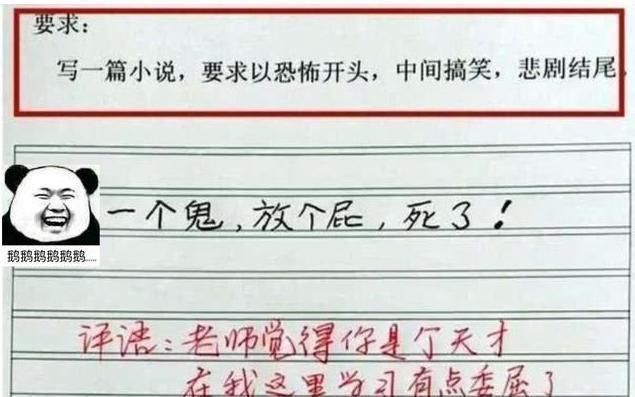 要求：
写一篇小说，要求以恐怖开头，中间搞笑，悲剧结尾。
一个鬼，放个屁，死了！
鹅鹅鹅鹅鹅鹅.....
评语：老师觉得你是个天才
在我这里学习有点委屈了